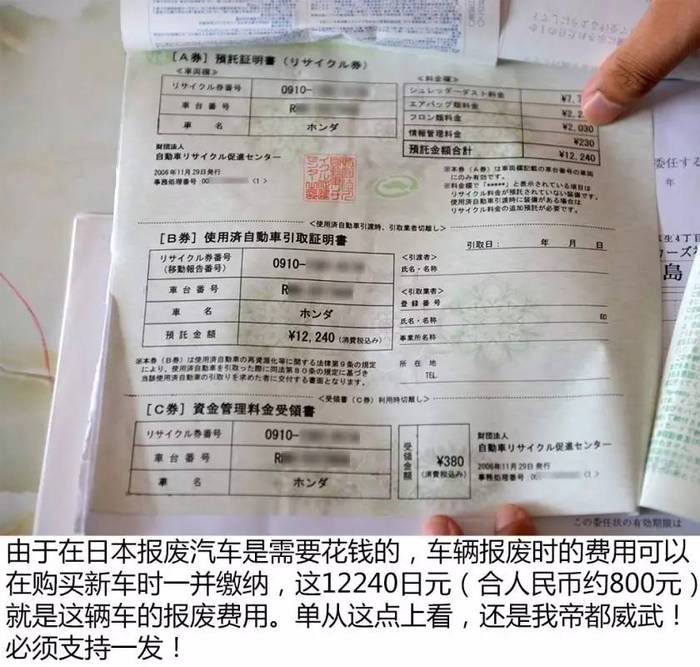 [A券] 預託証明書(リサイクル券)
<車両欄>
<料金欄>
リサイクル券番号 0910-
車台番号 R
車名 ホンダ
シュレッダーダスト料金
エアバッグ類料金
フロン類料金 ¥2,030
情報管理料金 ¥230
預託金額合計 ¥12,240
財団法人
自動車リサイクル促進センター
2006年11月29日発行
事務処理番号 00 <1>
※本券(A券)は車両欄記載の車台番号の車両
にのみ有効です。
※料金欄で「*****」と表示されている項目は
リサイクル料金が預託されていない装備です。
使用済自動車引渡時に装備がある場合は
リサイクル料金の追加預託が必要です。
<使用済自動車引渡時、引取業者切離し>
[B券] 使用済自動車引取証明書
引取日: 年 月 日
リサイクル券番号
(移動報告番号) 0910-
車台番号 R
車名 ホンダ
預託金額 ¥12,240 (消費税込み)
<引渡者>
氏名・名称
<引取業者>
登録番号
氏名・名称 印
事業所名称
所在地
TEL
※本券(B券)は使用済自動車の再資源化等に関する法律第9条の規定
により、使用済自動車を引取った際に同法第80条の規定に基づき
当該使用済自動車の引取りを求めた者に交付する書面となります。
<受領書(C券)利用時切離し>
[C券] 資金管理料金受領書
リサイクル券番号 0910-
車台番号 R
車名 ホンダ
受領金額 ¥380
(消費税込み)
財団法人
自動車リサイクル促進センター
2006年11月29日発行
事務処理番号 00 <1>
この委任状の有効期限は
由于在日本报废汽车是需要花钱的，车辆报废时的费用可以
在购买新车时一并缴纳，这12240日元（合人民币约800元）
就是这辆车的报废费用。单从这点上看，还是我帝都威武！
必须支持一发！